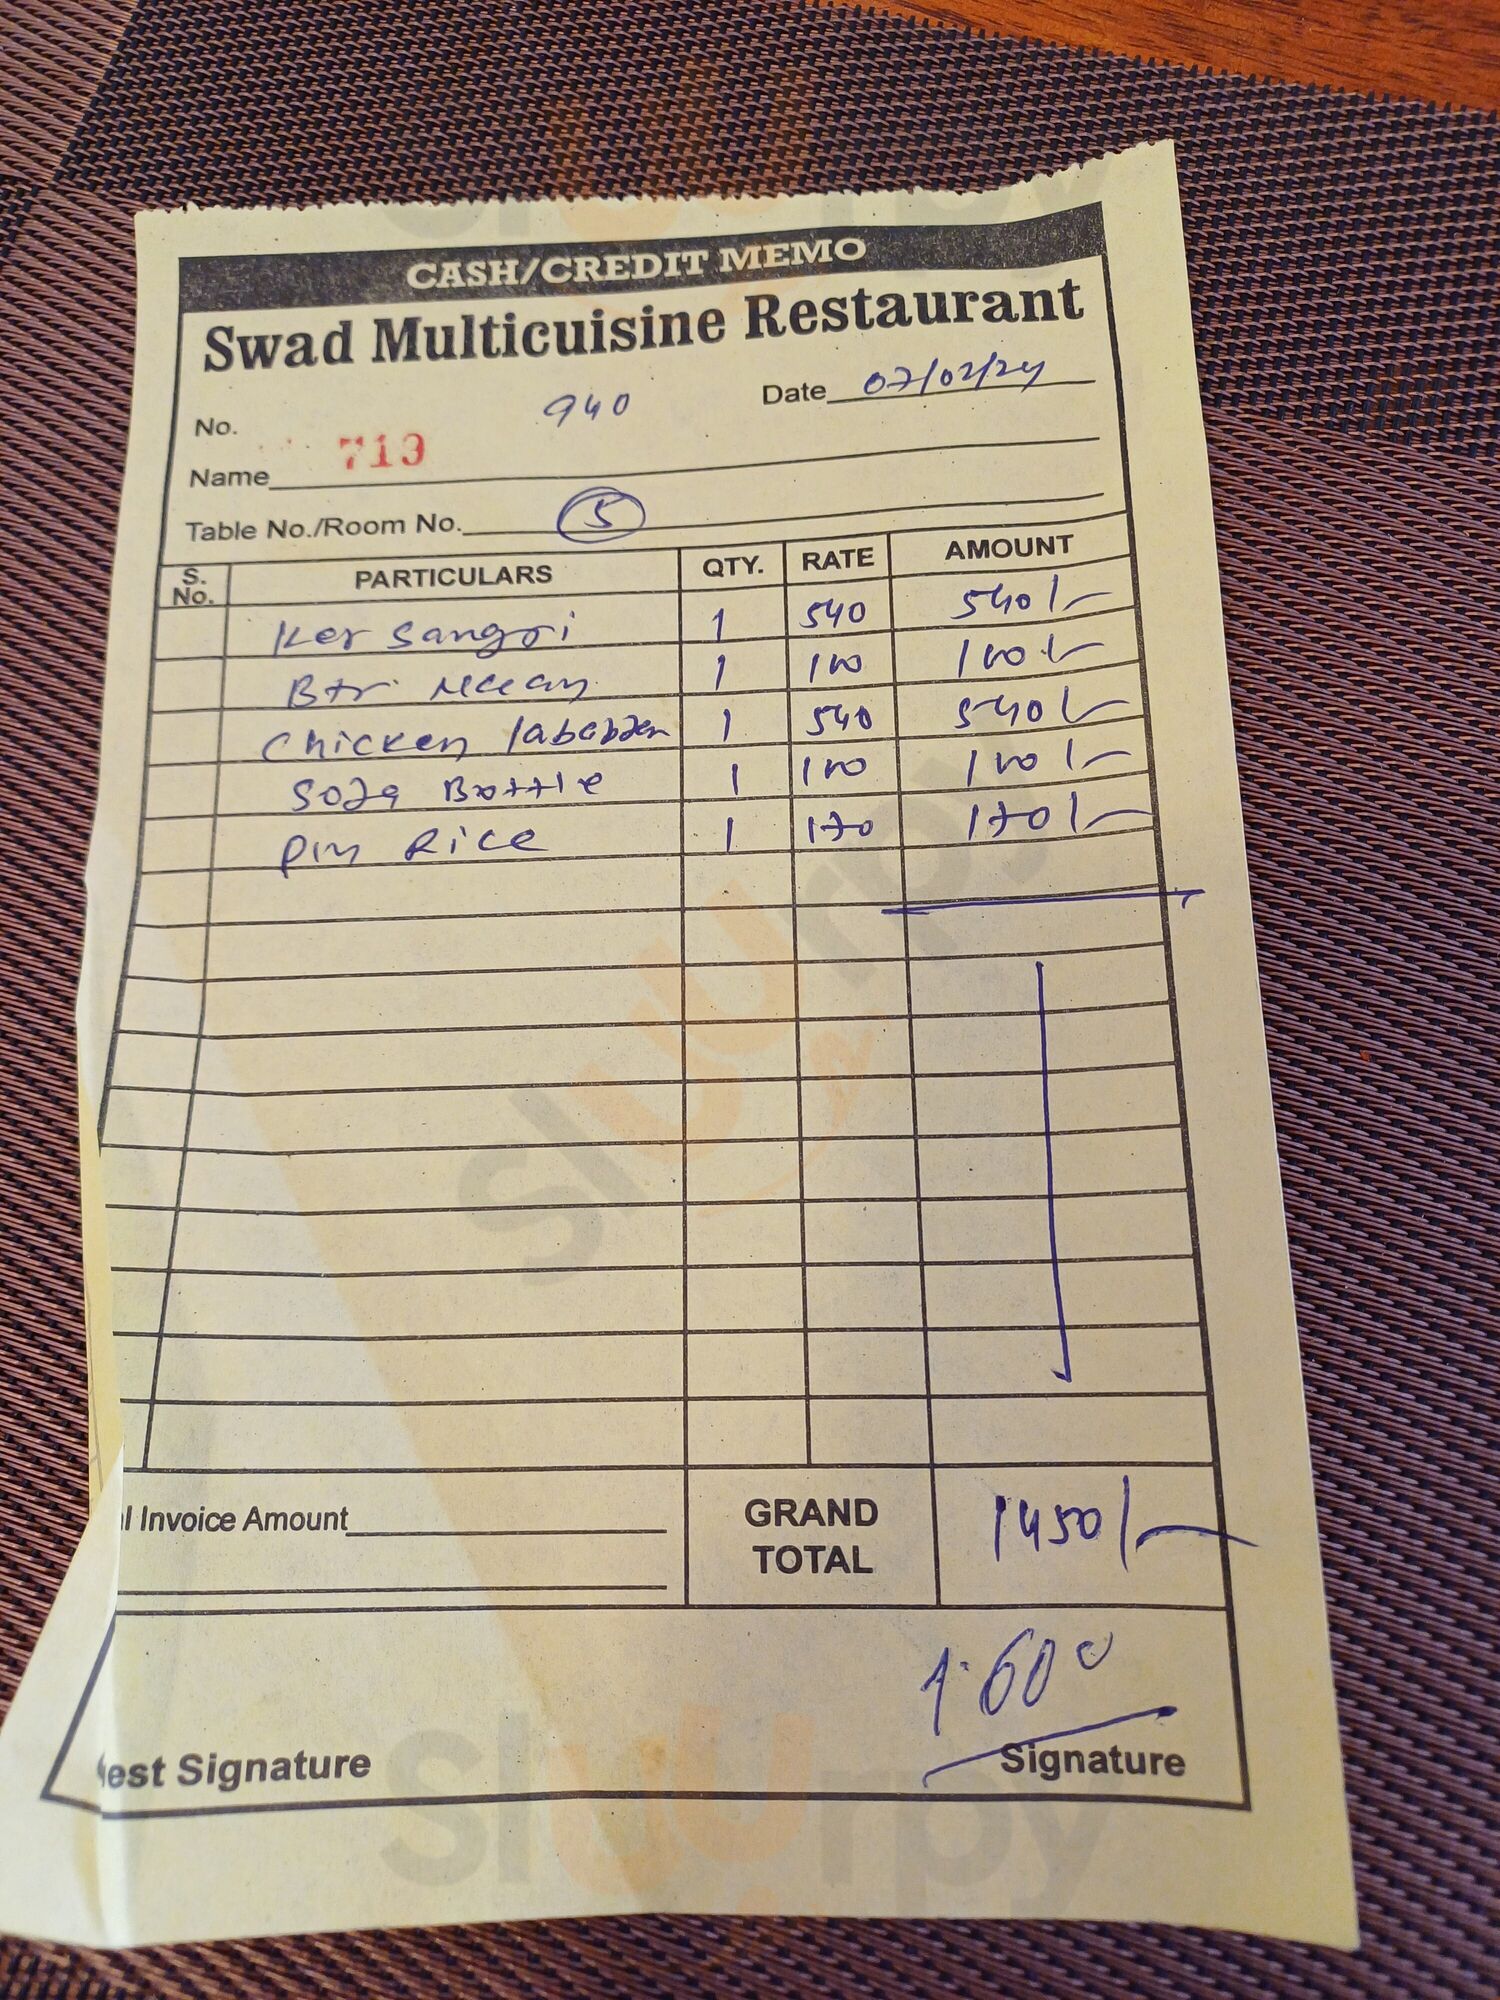 CASH/CREDIT MEMO
Swad Multicuisine Restaurant
No. 940 Date 07/02/24
713
Name
Table No./Room No. 5
S. No. PARTICULARS QTY. RATE AMOUNT
Ker Sangri 1 540 540/-
Btr. Naan 1 100 100/-
Chicken lababdar 1 540 540/-
Soda Bottle 1 100 100/-
Pln Rice 1 170 170/-
l Invoice Amount GRAND TOTAL 1450/-
1600
est Signature Signature
Sluurpy
Sluurpy
Sluurpy